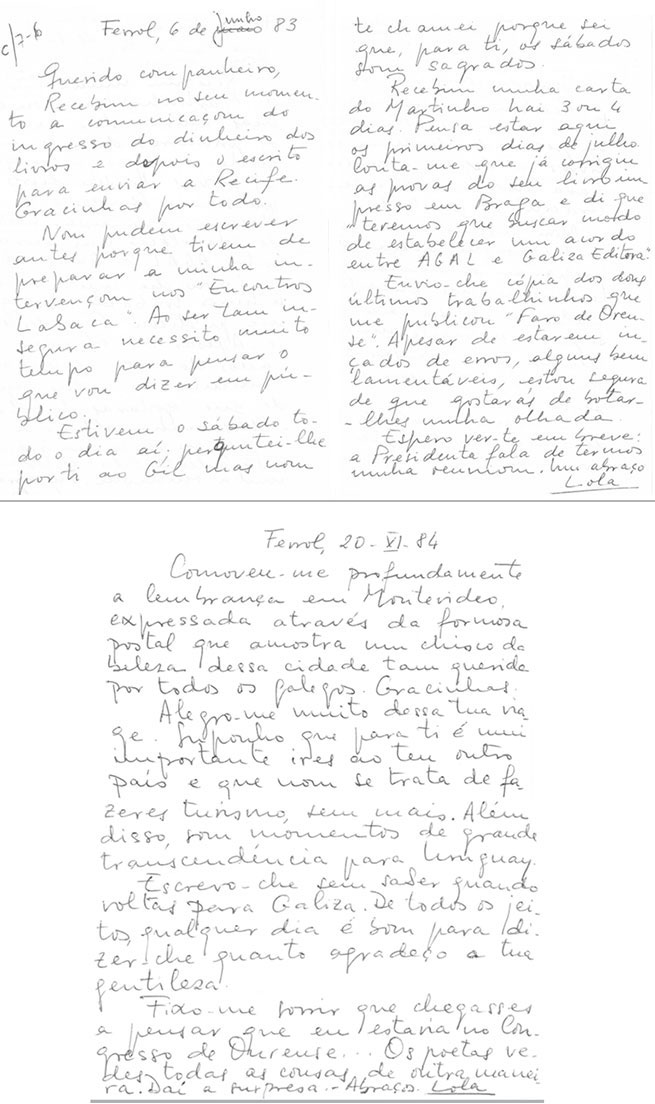 c/7-6
Ferrol, 6 de junho 83
Querido companheiro,
Recebim no seu momen-
to a comunicaçom do
ingresso do dinheiro dos
livros e depois o escrito
para enviar a Recife.
Gracinhas por todo.
Nom pudem escrever
antes porque tivem de
preparar a minha in-
tervençom nos "Encontros
Labaca". Ao ser tam in-
segura necessito muito
tempo para pensar o
que vou dizer em pú-
blico.
Estivem o sábado to-
do o dia aí; perguntei-lhe
por ti ao Gil mas nom
te chamei porque sei
que, para ti, os sábados
som sagrados.
Recebim unha carta
do Martinho hai 3 ou 4
dias. Pensa estar aqui
os primeiros dias de julho
Conta-me que já corrigiu
as provas do seu livro im
presso em Braga e di que
"teremos que buscar modo
de estabelecer um acordo
entre AGAL e Galiza Editora".
Envio-che cópia dos dous
últimos trabalhinhos que
me publicou "Faro de Oren-
se". Apesar de estarem in-
çados de erros, alguns bem
lamentáveis, estou segura
de que gostarás de botar-
-lhes unha olhada.
Espero ver-te em breve:
a Presidenta fala de termos
unha reuniom. Um abraço
Lola
Ferrol, 20-XI-84
Comoveu-me profundamente
a lembrança em Montevideo,
expressada através da formosa
postal que amostra um chisco da
beleza dessa cidade tam querida
por todos os galegos. Gracinhas.
Alegro-me muito dessa tua via-
ge. Suponho que para ti é mui
importante ires ao teu outro
país e que nom se trata de fa-
zeres turismo, sem mais. Além
disso, som momentos de grande
transcendência para Uruguay.
Escrevo-che sem saber quando
voltas para Galiza. De todos os jei-
tos, qualquer dia é bom para di-
zer-che quanto agradeço a tua
gentileza.
Fixo-me sorrir que chegasses
a pensar que eu estaria no Con-
gresso de Ourense... Os poetas ve-
des todas as cousas de outra manei-
ra. Daí a surpresa.- Abraços. Lola